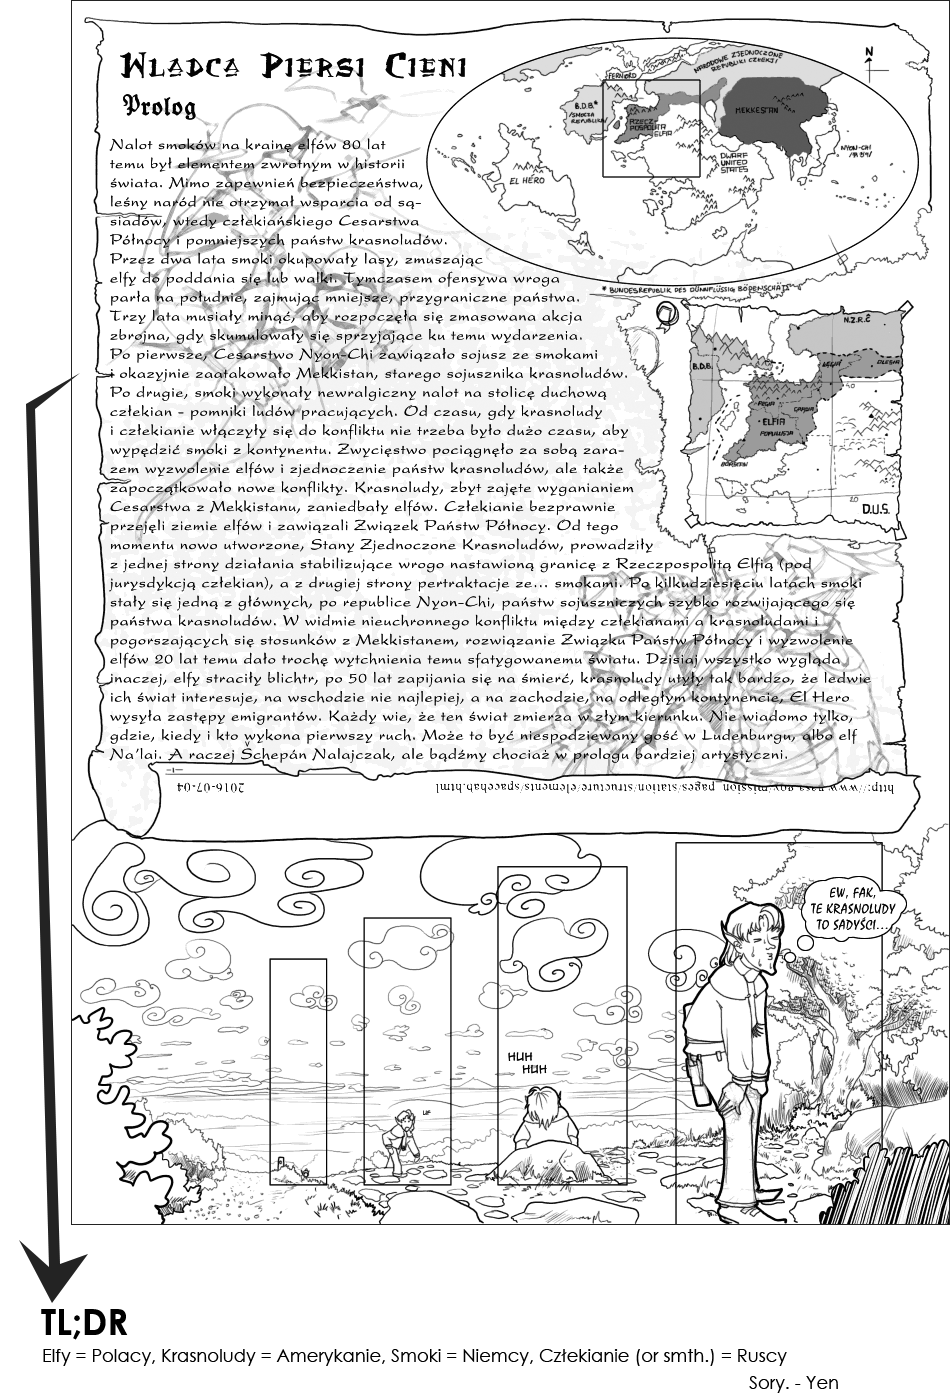 Władca Piersi Cieni
Prolog
Nalot smoków na krainę elfów 80 lat
temu był elementem zwrotnym w historii
świata. Mimo zapewnień bezpieczeństwa,
leśny naród nie otrzymał wsparcia od są-
siadów, wtedy człekiańskiego Cesarstwa
Północy i pomniejszych państw krasnoludów.
Przez dwa lata smoki okupowały lasy, zmuszając
elfy do poddania się lub walki. Tymczasem ofensywa wroga
parła na południe, zajmując mniejsze, przygraniczne państwa.
Trzy lata musiały minąć, aby rozpoczęła się zmasowana akcja
zbrojna, gdy skumulowały się sprzyjające ku temu wydarzenia.
Po pierwsze, Cesarstwo Nyon-Chi zawiązało sojusz ze smokami
i okazyjnie zaatakowało Mekkistan, starego sojusznika krasnoludów.
Po drugie, smoki wykonały newralgiczny nalot na stolicę duchową
człekian - pomniki ludów pracujących. Od czasu, gdy krasnoludy
i człekianie włączyły się do konfliktu nie trzeba było dużo czasu, aby
wypędzić smoki z kontynentu. Zwycięstwo pociągnęło za sobą zara-
zem wyzwolenie elfów i zjednoczenie państw krasnoludów, ale także
zapoczątkowało nowe konflikty. Krasnoludy, zbyt zajęte wyganianiem
Cesarstwa z Mekkistanu, zaniedbały elfów. Człekianie bezprawnie
przejęli ziemie elfów i zawiązali Związek Państw Północy. Od tego
momentu nowo utworzone, Stany Zjednoczone Krasnoludów, prowadziły
z jednej strony działania stabilizujące wrogo nastawioną granicę z Rzeczpospolitą Elfią (pod
jurysdykcją człekian), a z drugiej strony pertraktacje ze... smokami. Po kilkudziesięciu latach smoki
stały się jedną z głównych, po republice Nyon-Chi, państw sojuszniczych szybko rozwijającego się
państwa krasnoludów. W widmie nieuchronnego konfliktu między człekianami a krasnoludami i
pogorszających się stosunków z Mekkistanem, rozwiązanie Związku Państw Północy i wyzwolenie
elfów 20 lat temu dało trochę wytchnienia temu sfatygowanemu światu. Dzisiaj wszystko wygląda
inaczej, elfy straciły blichtr, po 50 lat zapijania się na śmierć, krasnoludy utyły tak bardzo, że ledwie
ich świat interesuje, na wschodzie nie najlepiej, a na zachodzie, na odległym kontynencie, El Hero
wysyła zastępy emigrantów. Każdy wie, że ten świat zmierza w złym kierunku. Nie wiadomo tylko,
gdzie, kiedy i kto wykona pierwszy ruch. Może to być niespodziewany gość w Ludenburgu, albo elf
Na'lai. A raczej Šchepán Nalajczak, ale bądźmy chociaż w prologu bardziej artystyczni.
NARODOWE ZJEDNOCZONE
REPUBLIKI CZŁEKJI
N
FERNORD
B.D.B.*
/SMOCZA
REPUBLIKA/
RZECZ-
POSPOLITA
ELFIA
MEKKESTAN
NYON-CHI
DWARF
UNITED
STATES
EL HERO
* BUNDESREPUBLIK DES DÜNNFLÜSSIG BÖDENSCHÄTS
N.Z.R.Č
B.D.B.
ELFIA
40
20
D.U.S.
-1-
2016-07-04
EW, FAK,
TE KRASNOLUDY
TO SADYŚCI...
HUH
HUH
UF
TL;DR
Elfy = Polacy, Krasnoludy = Amerykanie, Smoki = Niemcy, Człekianie (or smth.) = Ruscy
Sory. - Yen